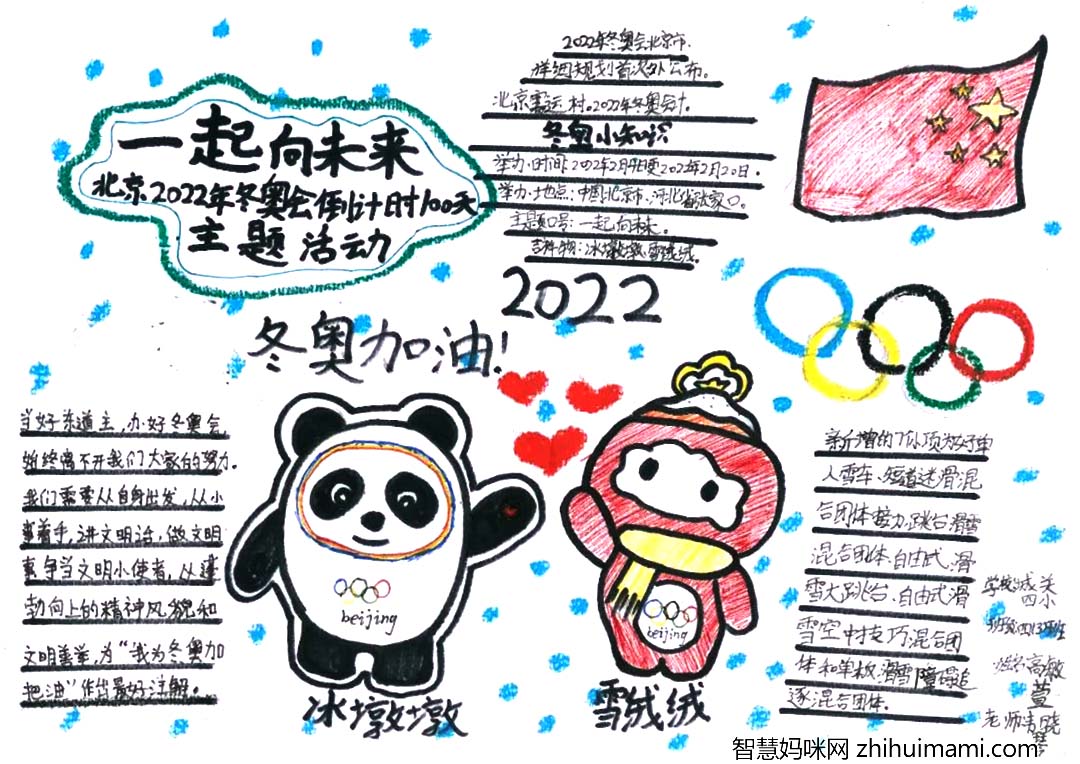 一起向未来
北京2022年冬奥会倒计时100天
主题活动
2022年冬奥会北京市.
详细规划首次外公布。
北京赛运村。2022年冬奥会计.
冬奥小知识
举办时间:2022年2月4日至2022年2月20日.
举办地点:中国北京市、河北省张家口。
主题口号:一起向未来.
吉祥物:冰墩墩.雪绒绒.
2022
冬奥加油!
当好东道主,办好冬奥会
始终离不开我们大家的努力.
我们需要从自身出发,从小
事着手,讲文明话,做文明
事争当文明小使者,从蓬
勃向上的精神风貌和
文明善举,为“我为冬奥加
把油”作出最好注解。
beijing
冰墩墩
beijing
雪绒绒
新增的7小项为女子单
人雪车、短道速滑混
合团体接力、跳台滑雪
混合团体、自由式.滑
雪大跳台、自由式滑
雪空中技巧混合团
体和单板.滑雪障碍追
逐混合团体.
学校:城关
四小
班级:四(3)班
姓名:高敏
萱
老师:
智慧妈咪网 zhihuimami.com